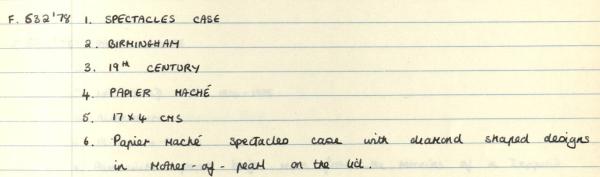 F. 532'78 1. SPECTACLES CASE
2. BIRMINGHAM
3. 19TH CENTURY
4. PAPIER MACHÉ
5. 17 x 4 CMS
6. Papier Maché spectacles case with diamond shaped designs
in Mother-of-pearl on the lid.